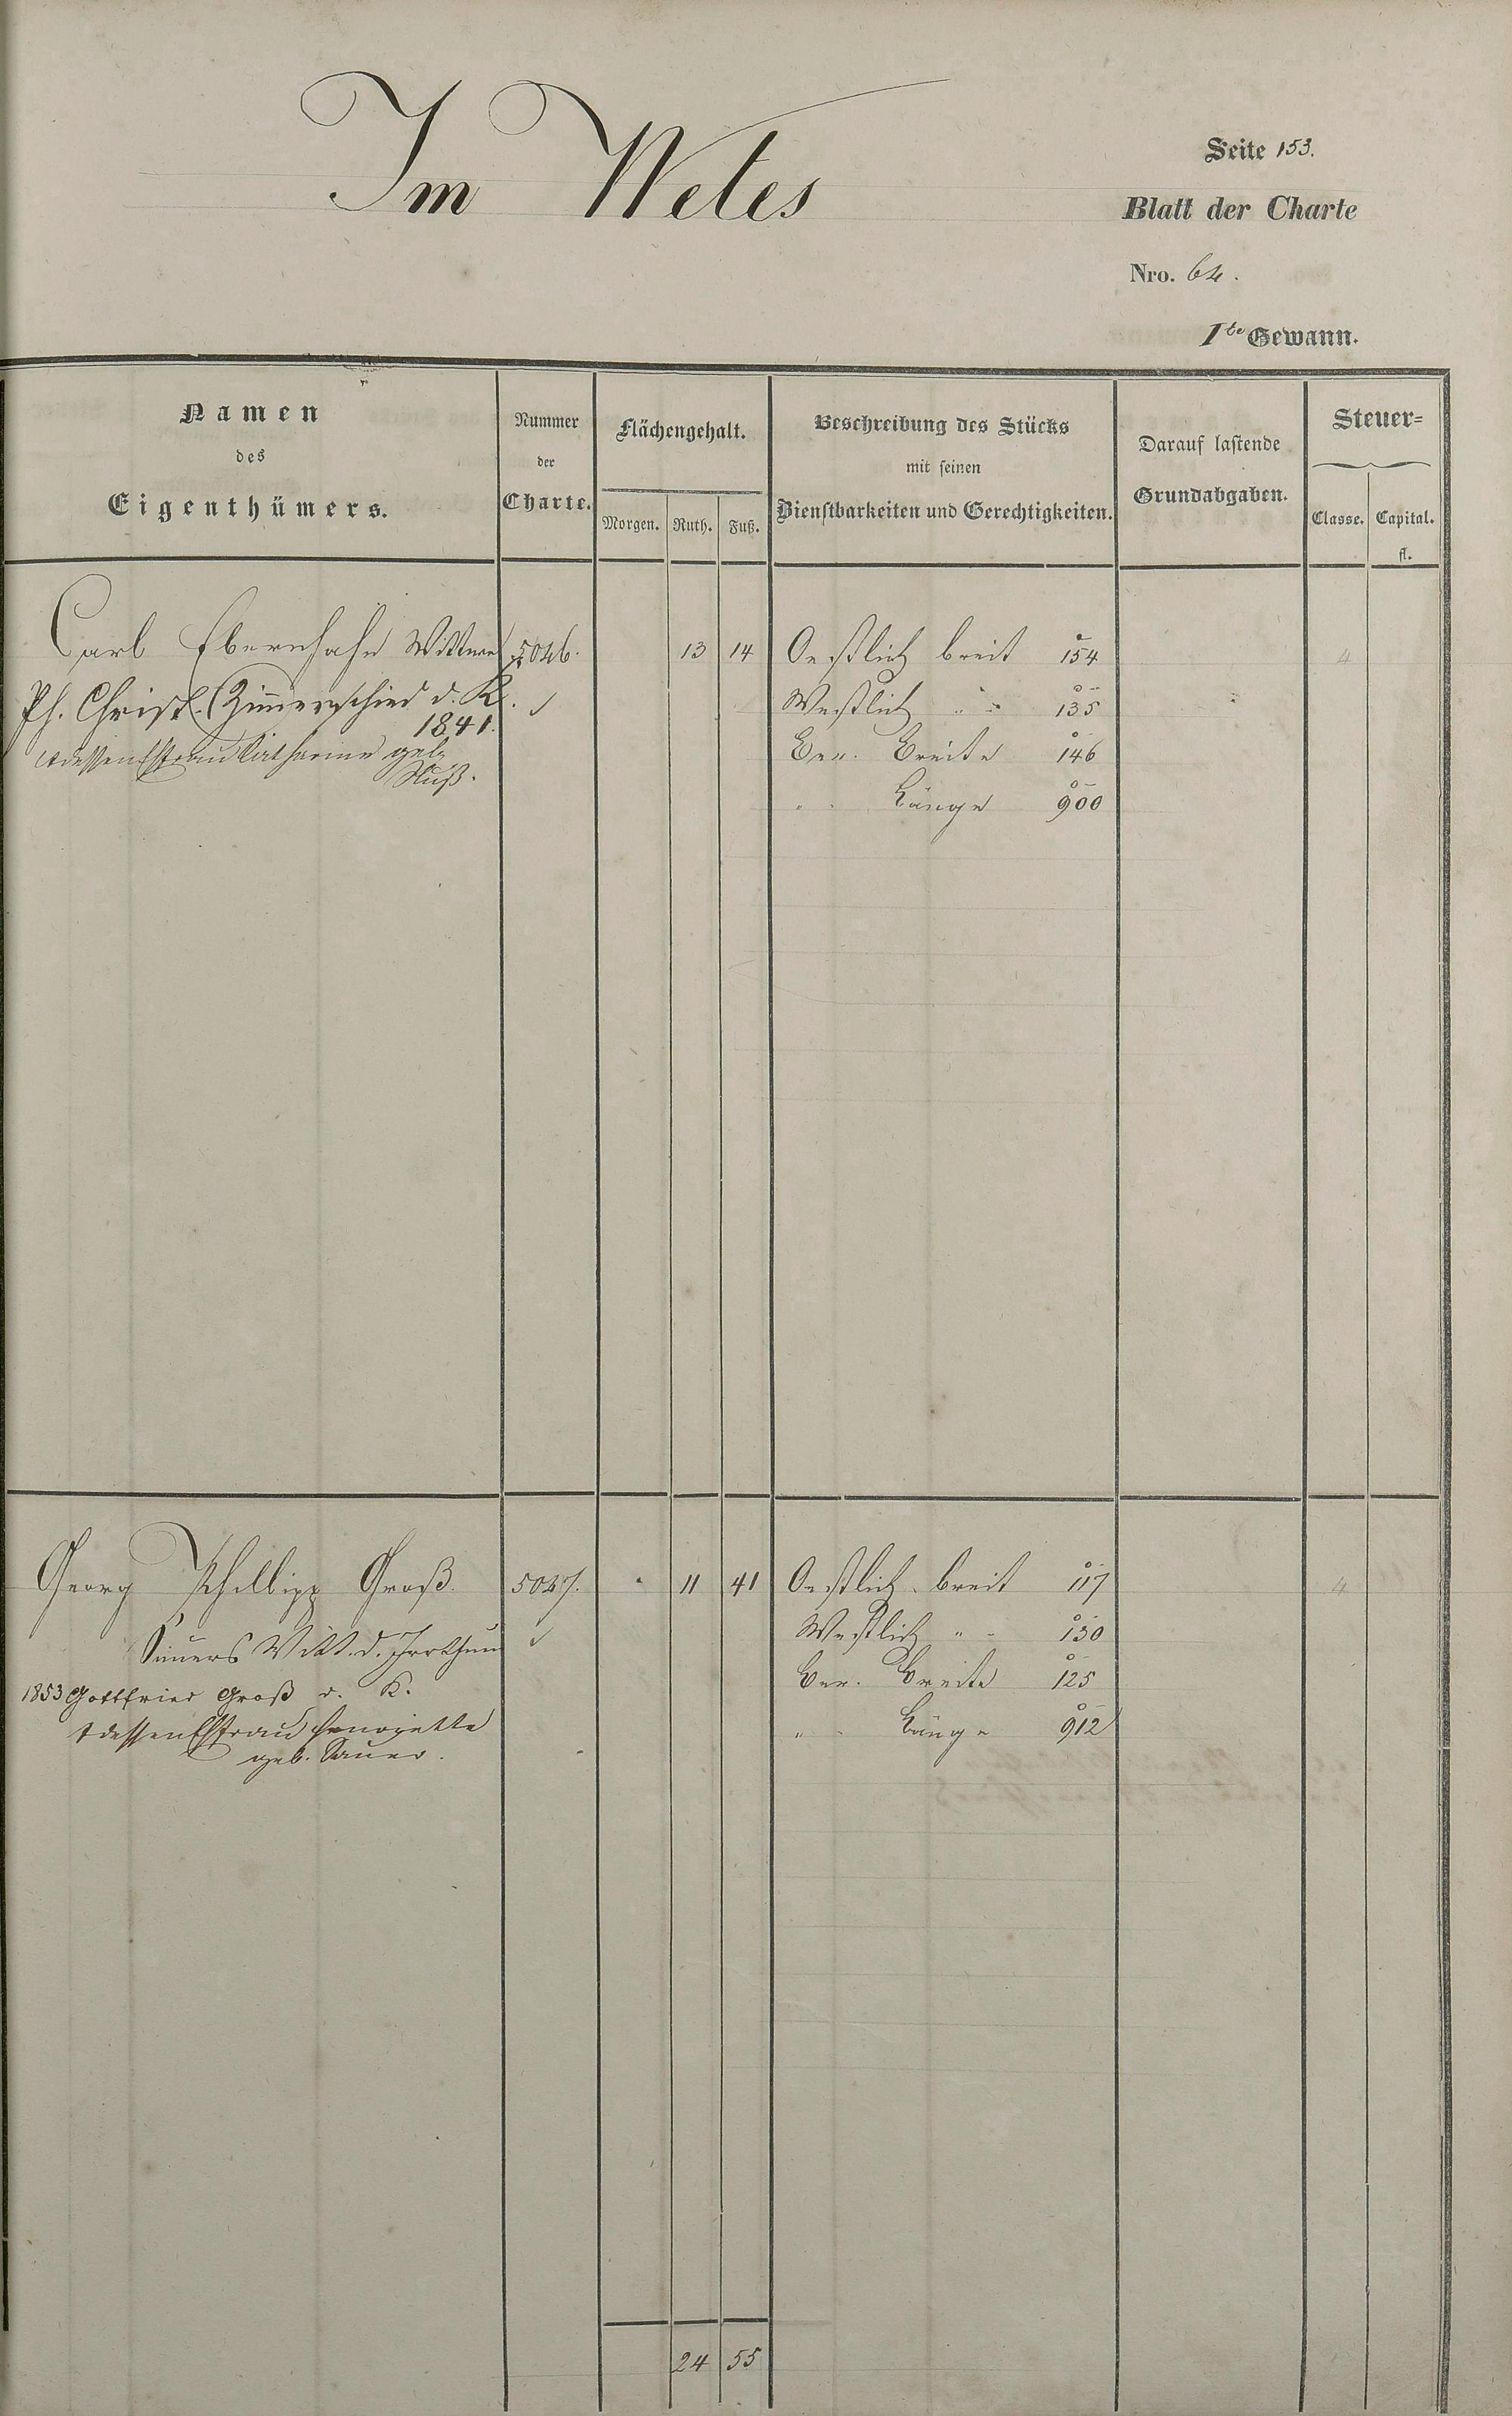 Im Wetes
Seite 153.
Blatt der Charte
Nro. 64.
1te Gewann.
Namen
des
Eigenthümers.
Nummer
der
Charte.
Flächengehalt.
Morgen. Ruth. Fuß.
Beschreibung des Stücks
mit seinen
Dienstbarkeiten und Gerechtigkeiten.
Darauf lastende
Grundabgaben.
Steuer=
Classe. Capital.
fl.
Carl Ebernhahn Wittwe 5046. 13 14 Oestlich breit 154 4
Ph. Christ. Zim̄erschied d. K. Westlich " " 135
1841.
Ber. Breite 146
& dessen Ehefrau Katharine geb.
Nuß.
" " Länge 900
Georg Philipp Groß 5047. 11 41 Oestlich breit 117 4
Witt. d. Westlich " " 130
1853 Gottfried Groß d. K. Ber. Breite 125
& dessen Ehefrau Henriette " " Länge 912
geb. Sauer.
24 55